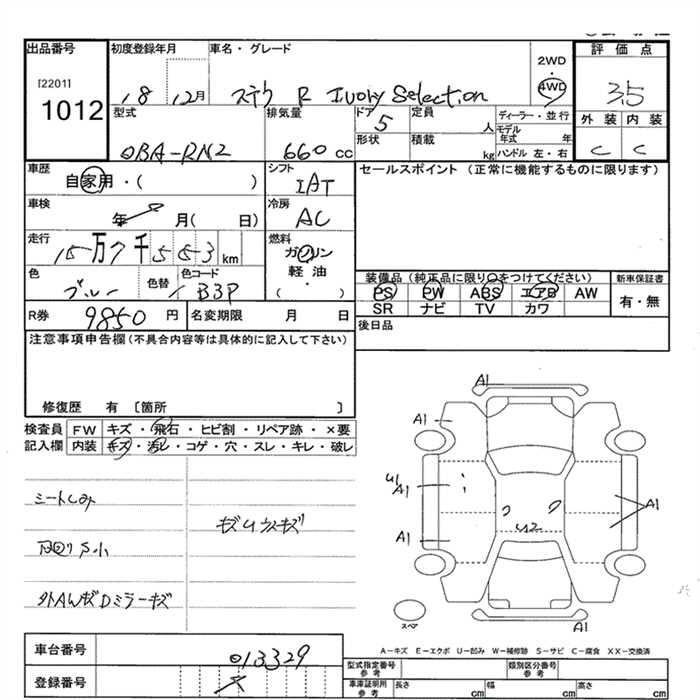 出品番号 初度登録年月 車名・グレード 2WD・4WD 評価点
[2201] 1012 18 12月 ステラ R Ivory Selection 3.5
外装 内装
C C
型式 排気量 ドア 定員 人 ディーラー・並行
DBA-RN2 660cc 5 モデル年式 年
形状 積載 kg ハンドル 左・右
車歴 シフト セールスポイント (正常に機能するものに限ります)
自家用・( ) IAT
車検 冷房
年 月( 日) AC
走行 燃料
15万7千563km ガソリン
軽油
( )
色 色替 色コード
ブルー B3P
装備品(純正品に限り○をつけてください) 新車保証書
PS PW ABS エアB AW 有・無
SR ナビ TV カワ
R券 9850円 名変期限 月 日
後日品
注意事項申告欄(不具合内容等は具体的に記入して下さい)
修復歴 有 〔箇所 〕
検査員記入欄 FW キズ・飛石・ヒビ割・リペア跡・×要
内装 キズ・汚レ・コゲ・穴・スレ・キレ・破レ
シートシミ
キズUウスキズ
下回りS小
外AWキズDミラーキズ
A1
A1
U1
A1
A1
A1
U2
A1
スペア
A-キズ E-エクボ U-凹み W-補修跡 S-サビ C-腐食 XX-交換済
車台番号 013329
登録番号
型式指定番号 参考 類別区分番号 参考
車庫証明用 参考 長さ cm 幅 cm 高さ cm